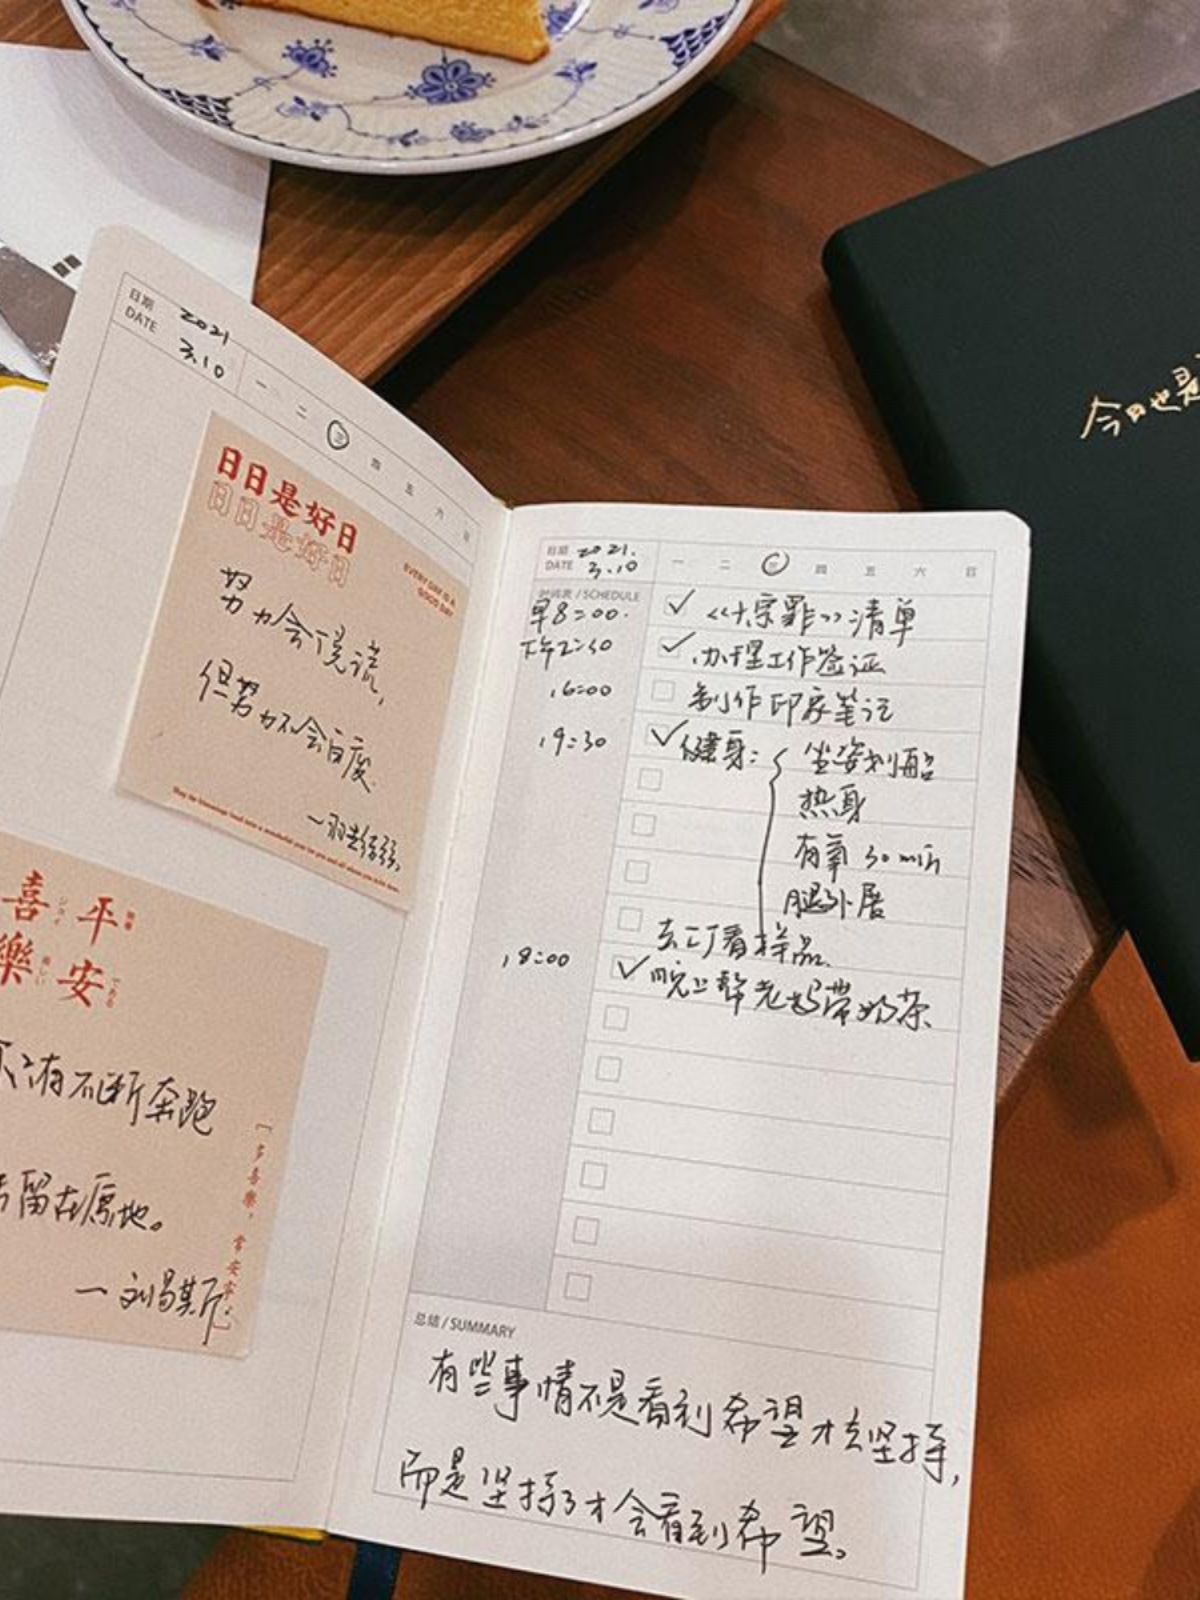 日期
DATE
2021
3.10
一 二 三 四 五 六 日
日日是好日
日日是好日
EVERY DAY IS A
GOOD DAY
努力会说谎,
但努力不会白废.
喜 平
樂 安
有不断奔跑
留在原地。
[多喜樂,常安寧。]
今日也是
日期
DATE
2021.
3.10
一 二 三 四 五 六 日
时间表 / SCHEDULE
早8:00. 《十宗罪》清单
下午2:30 办理工作签证
16:00 制作印象笔记
19:30 健身: 坐姿划船
热身
有氧 30 min
腿外展
去工厂看样品.
18:00 晚上帮老妈带奶茶.
总结 / SUMMARY
有些事情不是看到希望才去坚持,
而是坚持了才会看到希望。